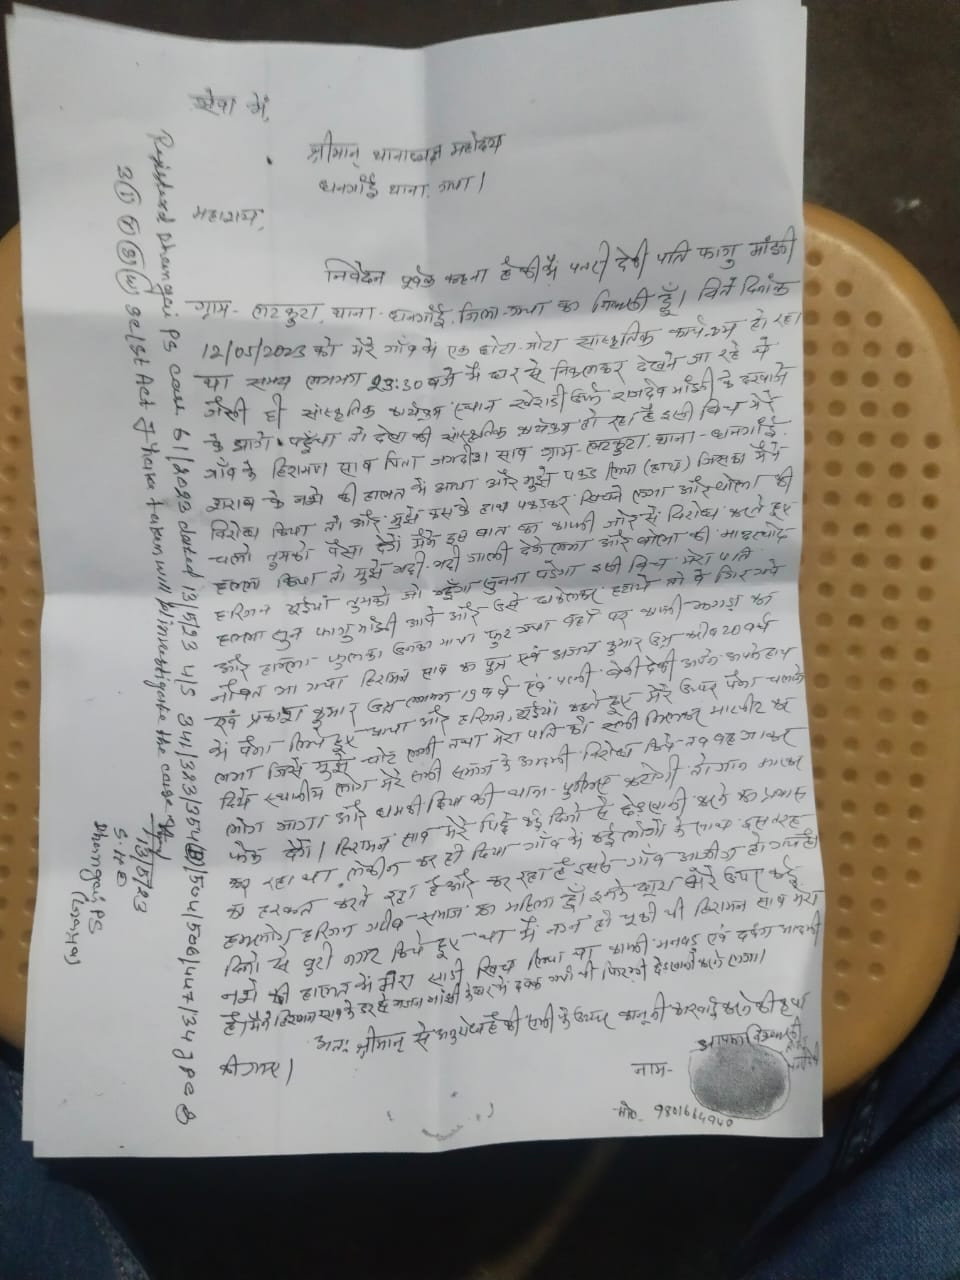 सेवा में,
श्रीमान् थानाध्यक्ष महोदय
धनगाँई थाना, गया।
महाशय,
निवेदन पूर्वक कहना है की मैं देवी पति फागु मांझी
ग्राम- लटकुटा, थाना- धनगाँई, जिला- गया का निवासी हूँ। बिते दिनांक
12/05/2023 को मेरे गाँव में एक छोटा-मोटा सांस्कृतिक कार्यक्रम हो रहा
था समय लगभग 23:30 बजे मैं घर से निकलकर देखने जा रहे थे
जैसी ही सांस्कृतिक कार्यक्रम स्थान उर्फ राजदेव मांझी के दरवाजे
के आगे पहुँचा तो देखा की सांस्कृतिक कार्यक्रम हो रहा है इसी बिच मेरे
गाँव के हिरामण साव पिता जगदीश साव ग्राम- लटकुटा, थाना- धनगाँई
शराब के नशे की हालत में आया और मुझे पकड़ लिया (हाथ) जिसका मैंने
विरोध किया तो और मुझे हाथ पकड़कर खिचने लगा और बोला की
चलो तुमको पैसा देंगे मैंने इस बात का काफी जोर से विरोध करते हुए
हल्ला किया तो मुझे गंदी-गंदी गाली देने लगा और बोला की
हरिजन भुईयां तुमको जो कहूँगा सुनना पड़ेगा इसी बिच मेरा पति
हल्ला सुन फागु मांझी आये और उसे धकेलकर हटाये तो वे गिर गये
और उनका माथा फुट गया वहाँ पर काफी झगड़ा का
नौबत आ गया हिरामन साव का पुत्र अजय कुमार उम्र करीब 20 वर्ष
एवं प्रकाश कुमार उम्र लगभग 19 वर्ष एवं पत्नी बेबी देवी अपने अपने हाथ
में पैना लिये हुए आया और हरिजन, भुईयां कहते हुए मेरे ऊपर पैना चलाने
लगा जिसे मुझे चोट लगी तथा मेरा पति को सभी मिलकर मारपीट कर
दिये स्थानीय लोग मेरे सभी समाज के आदमी विरोध किये तब वह जाकर
लोग भागा और धमकी दिया की थाना-पुलिस करोगी तो जान मारकर
फेंक देंगे। हिरामन साव मेरे पिछे कई दिनों से छेड़खानी करने का प्रयास
कर रहा था, लेकीन कर ही दिया गाँव में कई लोगों के साथ इस तरह
का हरकत करते रहा है और कर रहा है इससे गाँव आजीज हो गये है।
हमलोग हरिजन गरीब समाज का महिला हूँ। इनके द्वारा मेरे ऊपर कई
दिनों से बुरी नजर किये हुए था मैं हो चूकी थी हिरामन साव मेरा
नशे की हालत में मेरा साड़ी खिच लिया था काफी मनबढ़ एवं दबंग आदमी
है। मैंने हिरामन साव के डर से मांझी के घर में गयी थी फिर भी छेड़खानी करने लगा।
अतः श्रीमान् से अनुरोध है की सभी के ऊपर कानूनी कारवाई करने की कृपा
की जाए।
आपका विश्वासी
नाम-
मो० 9801664940
Registered Dhangai PS case 61/2023 dated 13/5/23 u/s 341/323/354(B)/504/506/447/34 IPC &
3(1)(r)(s)(w) SC/ST Act I have taken will investigate the case
13/5/23
S.H.O
Dhangai PS
(Gaya)